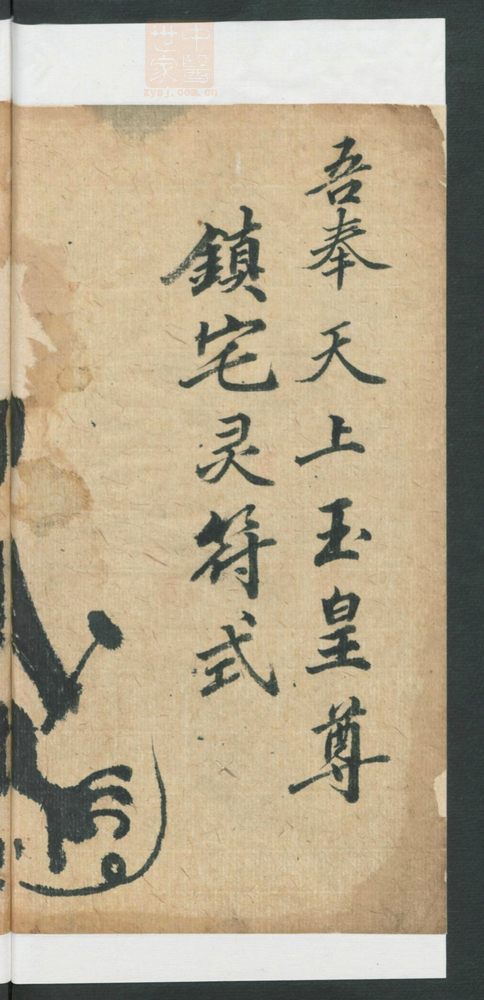 吾奉天上玉皇尊
鎮宅灵符式
中醫世家
zysj.com.cn